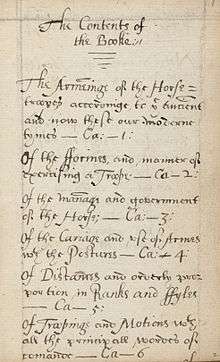 The Contents of
the Booke:
The Arminge of the Horse=
troopes accordinge to yͤ Auncient
and now these our moderne
tymes — Ca: — 1:
Of the formes, and manner of
exercising a Troope — Ca — 2:
Of the mannag and government
of the Horse; — Ca — 3:
Of the Cariage and use of Armes
wᵗʰ the Postures — Ca: — 4:
Of Distances and orderly pro=
portion in Ranks and ffyles
— Ca — 5:
Of Troopings and Motions wᵗʰ
all the principall wordes of
comande — Ca — 6